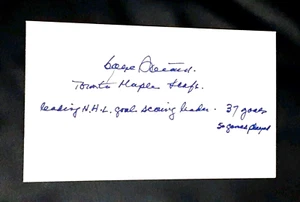 Gaye Stewart.
Toronto Maple Leafs.
leading N.H.L. goal scoring leader. 37 goals
50 games played